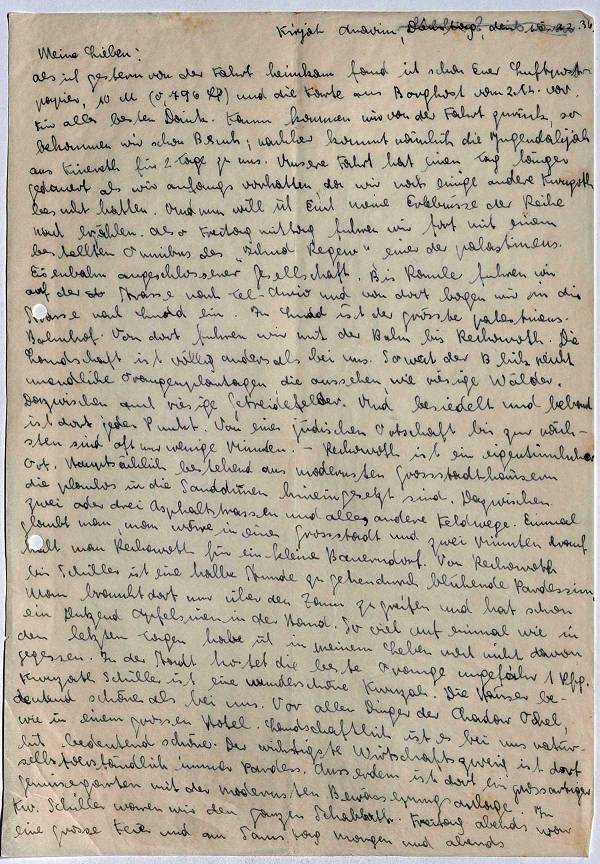 Kirjat Anavim, 36
Meine Lieben!
Als ich gestern von der Fahrt heimkam fand ich schon Euer Luftpost-
papier, 10 M (0,796 LP) und die Karte aus Borghorst vom 2. vor.
Für alles besten Dank. Kaum kommen wir von der Fahrt zurück, so
bekommen wir schon Besuch; nachher kommt nämlich die Jugendalijah
aus Kinereth für 2 Tage zu uns. Unsere Fahrt hat einen Tag länger
gedauert als wir anfangs vorhatten, da wir noch einige andere Kwuzoth
besucht hatten. Und nun will ich Euch meine Erlebnisse der Reihe
nach erzählen. Also Freitag mittag fuhren wir fort mit einem
bestellten Omnibus des einer der palästinens.
Eisenbahn angeschlossener Gesellschaft. Bis Ramle fuhren wir
auf der Strasse nach Tel-Awiw und von dort bogen wir in die
Strasse nach Ludd ein. In Ludd ist der grösste palästinens.
Bahnhof. Von dort fuhren wir mit der Bahn bis Rechowoth. Die
Landschaft ist völlig anders als bei uns. Soweit der Blick reicht
unendliche Orangenplantagen die aussehen wie riesige Wälder.
Dazwischen auch riesige Getreidefelder. Und besiedelt und bebaut
ist dort jeder Punkt. Von einer jüdischen Ortschaft bis zur näch-
sten sind oft nur wenige Minuten. - Rechowoth ist ein eigentümlicher
Ort. Hauptsächlich bestehend aus modernsten Grossstadthäusern
die planlos in die Sanddünen hineingesetzt sind. Dazwischen
zwei oder drei Asphaltstrassen und alles andere Feldwege. Einmal
glaubt man, man wäre in einer Grossstadt und zwei Minuten drauf
hält man Rechowoth für ein kleines Bauerndorf. Von Rechowoth
bis Schiller ist eine halbe Stunde zu gehen durch blühende Pardessim.
Man braucht dort nur über den Zaun zu greifen und hat schon
ein Dutzend Apfelsinen in der Hand. So viel auf einmal wie in
den letzten Tagen habe ich in meinem Leben noch nicht davon
gegessen. In der Stadt kostet die beste Orange ungefähr 1 Pfg.
Kwuzath Schiller ist eine wunderschöne Kwuzah. Die Häuser be-
deutend schöner als bei uns. Vor allen Dingen der Chadar Ochel,
wie in einem grossen Hotel. Landschaftlich ist es bei uns natür-
lich bedeutend schöner. Der wichtigste Wirtschaftszweig ist dort
selbstverständlich immer Pardess. Ausserdem ist dort ein grossartiger
Gemüsegarten mit der modernsten Bewässerungsanlage. In
Kw. Schiller waren wir den ganzen Schabbath. Freitag abends war
eine grosse Feier und am Samstag morgen und abends